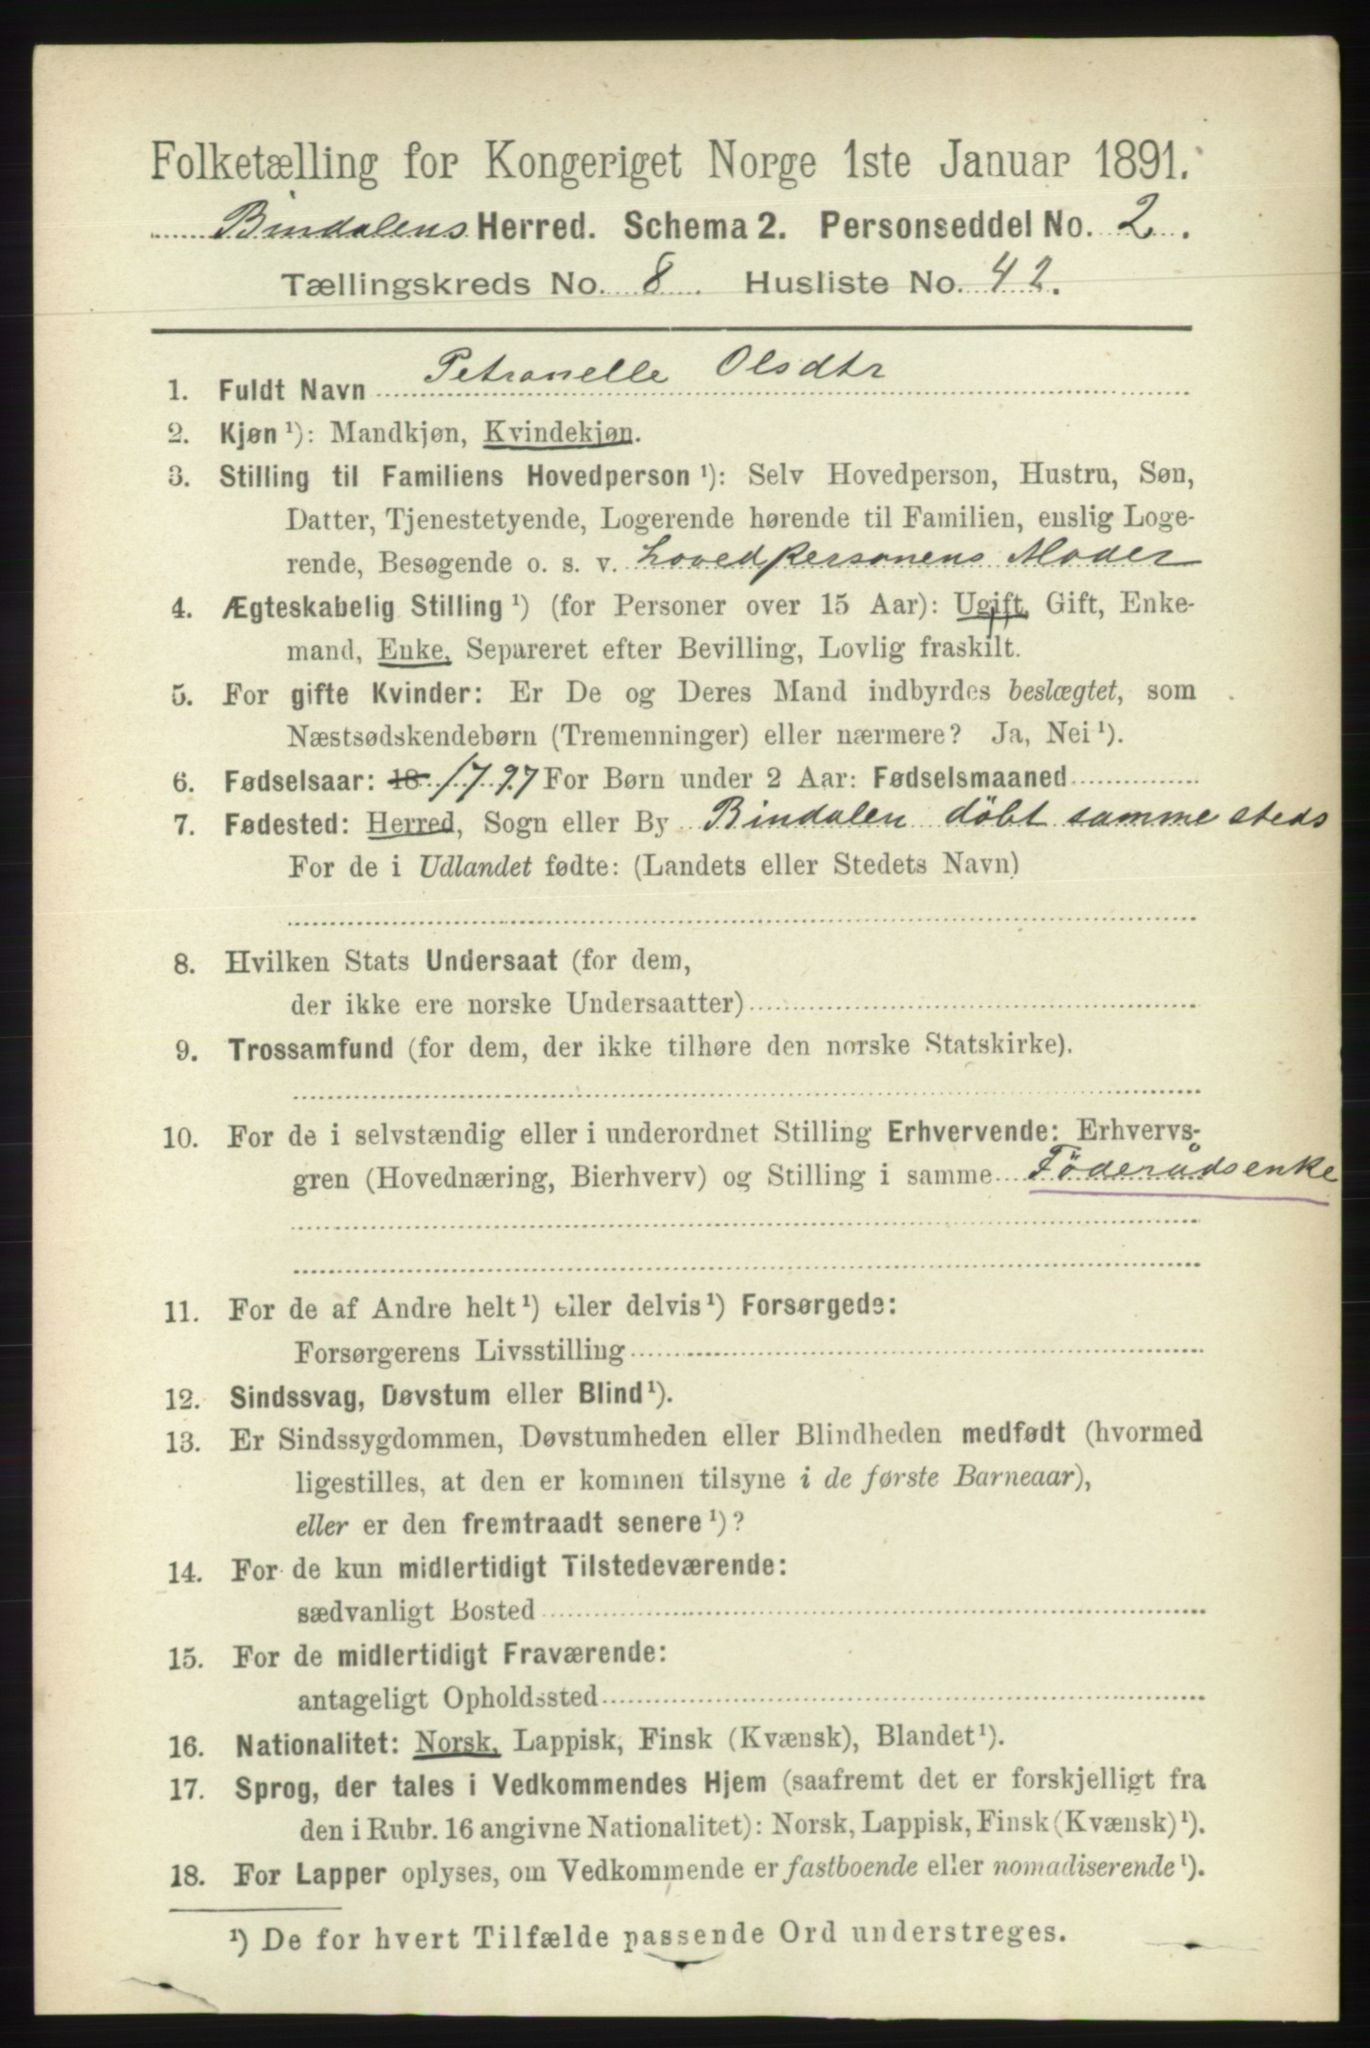 Folketælling for Kongeriget Norge 1ste Januar 1891.
Bindalens Herred. Schema 2. Personseddel No. 2.
Tællingskreds No. 8. Husliste No. 42.
1. Fuldt Navn Petronelle Olsdtr
2. Kjøn ¹): Mandkjøn, Kvindekjøn.
3. Stilling til Familiens Hovedperson ¹): Selv Hovedperson, Hustru, Søn,
Datter, Tjenestetyende, Logerende hørende til Familien, enslig Loge-
rende, Besøgende o. s. v. hovedpersonens Moder
4. Ægteskabelig Stilling ¹) (for Personer over 15 Aar): Ugift, Gift, Enke-
mand, Enke, Separeret efter Bevilling, Lovlig fraskilt.
5. For gifte Kvinder: Er De og Deres Mand indbyrdes beslægtet, som
Næstsødskendebørn (Tremenninger) eller nærmere? Ja, Nei ¹).
6. Fødselsaar: 18 1797 For Børn under 2 Aar: Fødselsmaaned
7. Fødested: Herred, Sogn eller By Bindalen döbt sammesteds
For de i Udlandet fødte: (Landets eller Stedets Navn)
8. Hvilken Stats Undersaat (for dem,
der ikke ere norske Undersaatter)
9. Trossamfund (for dem, der ikke tilhøre den norske Statskirke).
10. For de i selvstændig eller i underordnet Stilling Erhvervende: Erhvervs-
gren (Hovednæring, Bierhverv) og Stilling i samme Föderådsenke
11. For de af Andre helt ¹) eller delvis ¹) Forsørgede:
Forsørgerens Livsstilling
12. Sindssvag, Døvstum eller Blind ¹).
13. Er Sindssygdommen, Døvstumheden eller Blindheden medfødt (hvormed
ligestilles, at den er kommen tilsyne i de første Barneaar),
eller er den fremtraadt senere ¹)?
14. For de kun midlertidigt Tilstedeværende:
sædvanligt Bosted
15. For de midlertidigt Fraværende:
antageligt Opholdssted
16. Nationalitet: Norsk, Lappisk, Finsk (Kvænsk), Blandet ¹).
17. Sprog, der tales i Vedkommendes Hjem (saafremt det er forskjelligt fra
den i Rubr. 16 angivne Nationalitet): Norsk, Lappisk, Finsk (Kvænsk) ¹).
18. For Lapper oplyses, om Vedkommende er fastboende eller nomadiserende ¹).
¹) De for hvert Tilfælde passende Ord understreges.